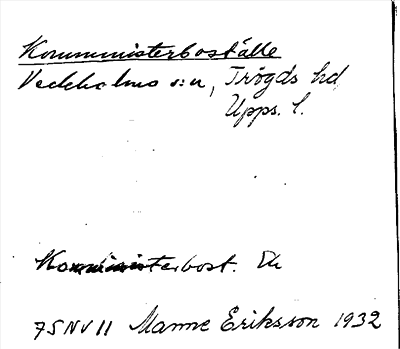 Kommministerboställe
Veckholms s:n, Trögds hd,
Upps. l.
Kommministerbost.
75NV11 Manne Eriksson 1932